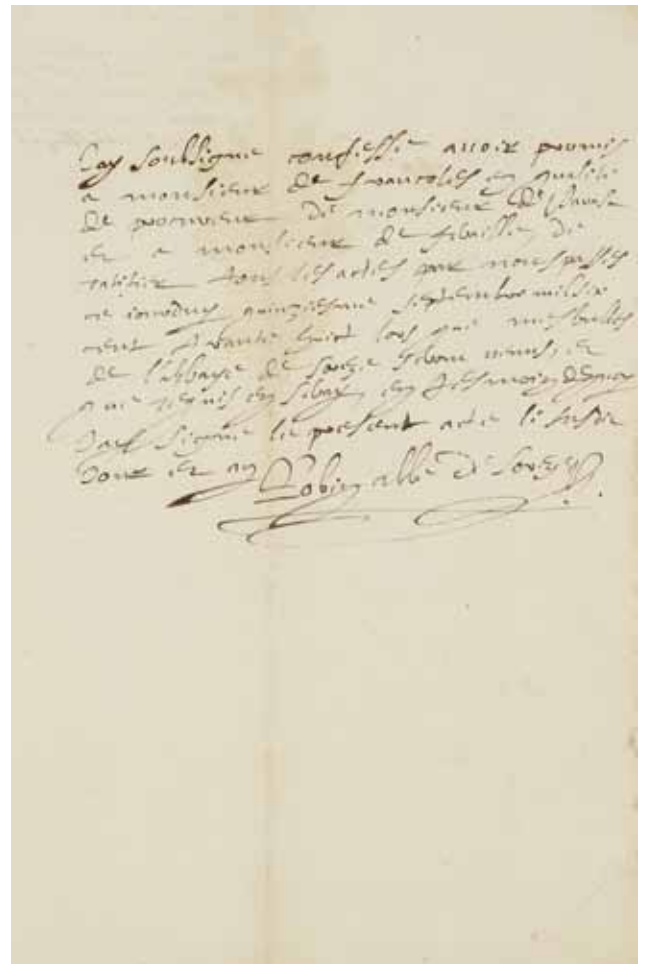 Jay soubsigne confesse auoir promis
a monsieur de francoles en qualite
de procureur de monsieur de
et a monsieur de de
ratifier tous les actes par nous passes
ce iourdhuy quinziesme septembre mil six
cent quarante huict lors que mes bulles
de l'abbaye de soreze seront venues, et
que en tesmoin dequoy
Jay signe le present acte le susdit
Jour et an Robin abbe de Soreze